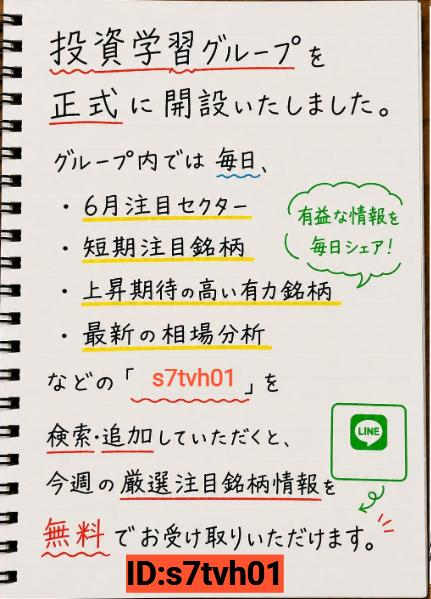 投資学習グループを
正式に開設いたしました。
グループ内では毎日、
・6月注目セクター
・短期注目銘柄
・上昇期待の高い有力銘柄
・最新の相場分析
有益な情報を
毎日シェア！
などの「s7tvh01」を
検索・追加していただくと、
LINE
今週の厳選注目銘柄情報を
無料でお受け取りいただけます。
ID:s7tvh01